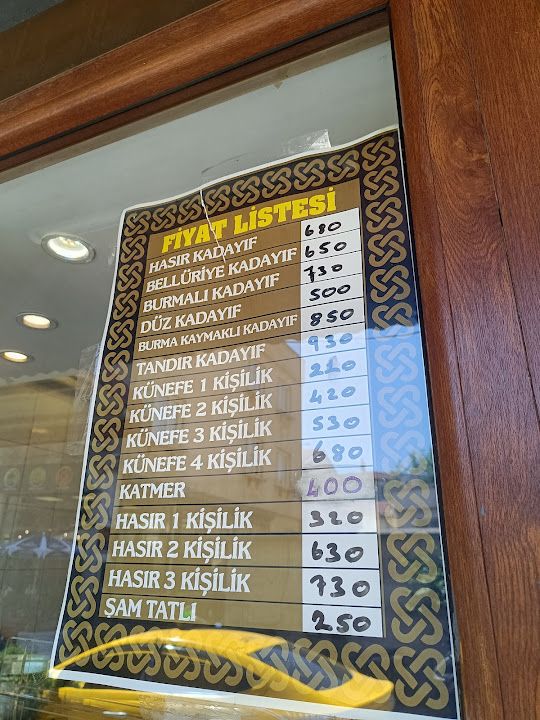 FİYAT LİSTESİ
HASIR KADAYIF 680
BELLÜRİYE KADAYIF 650
BURMALI KADAYIF 730
DÜZ KADAYIF 500
BURMA KAYMAKLI KADAYIF 850
TANDIR KADAYIF 930
KÜNEFE 1 KİŞİLİK 220
KÜNEFE 2 KİŞİLİK 420
KÜNEFE 3 KİŞİLİK 530
KÜNEFE 4 KİŞİLİK 680
KATMER 400
HASIR 1 KİŞİLİK 320
HASIR 2 KİŞİLİK 630
HASIR 3 KİŞİLİK 730
ŞAM TATLI 250